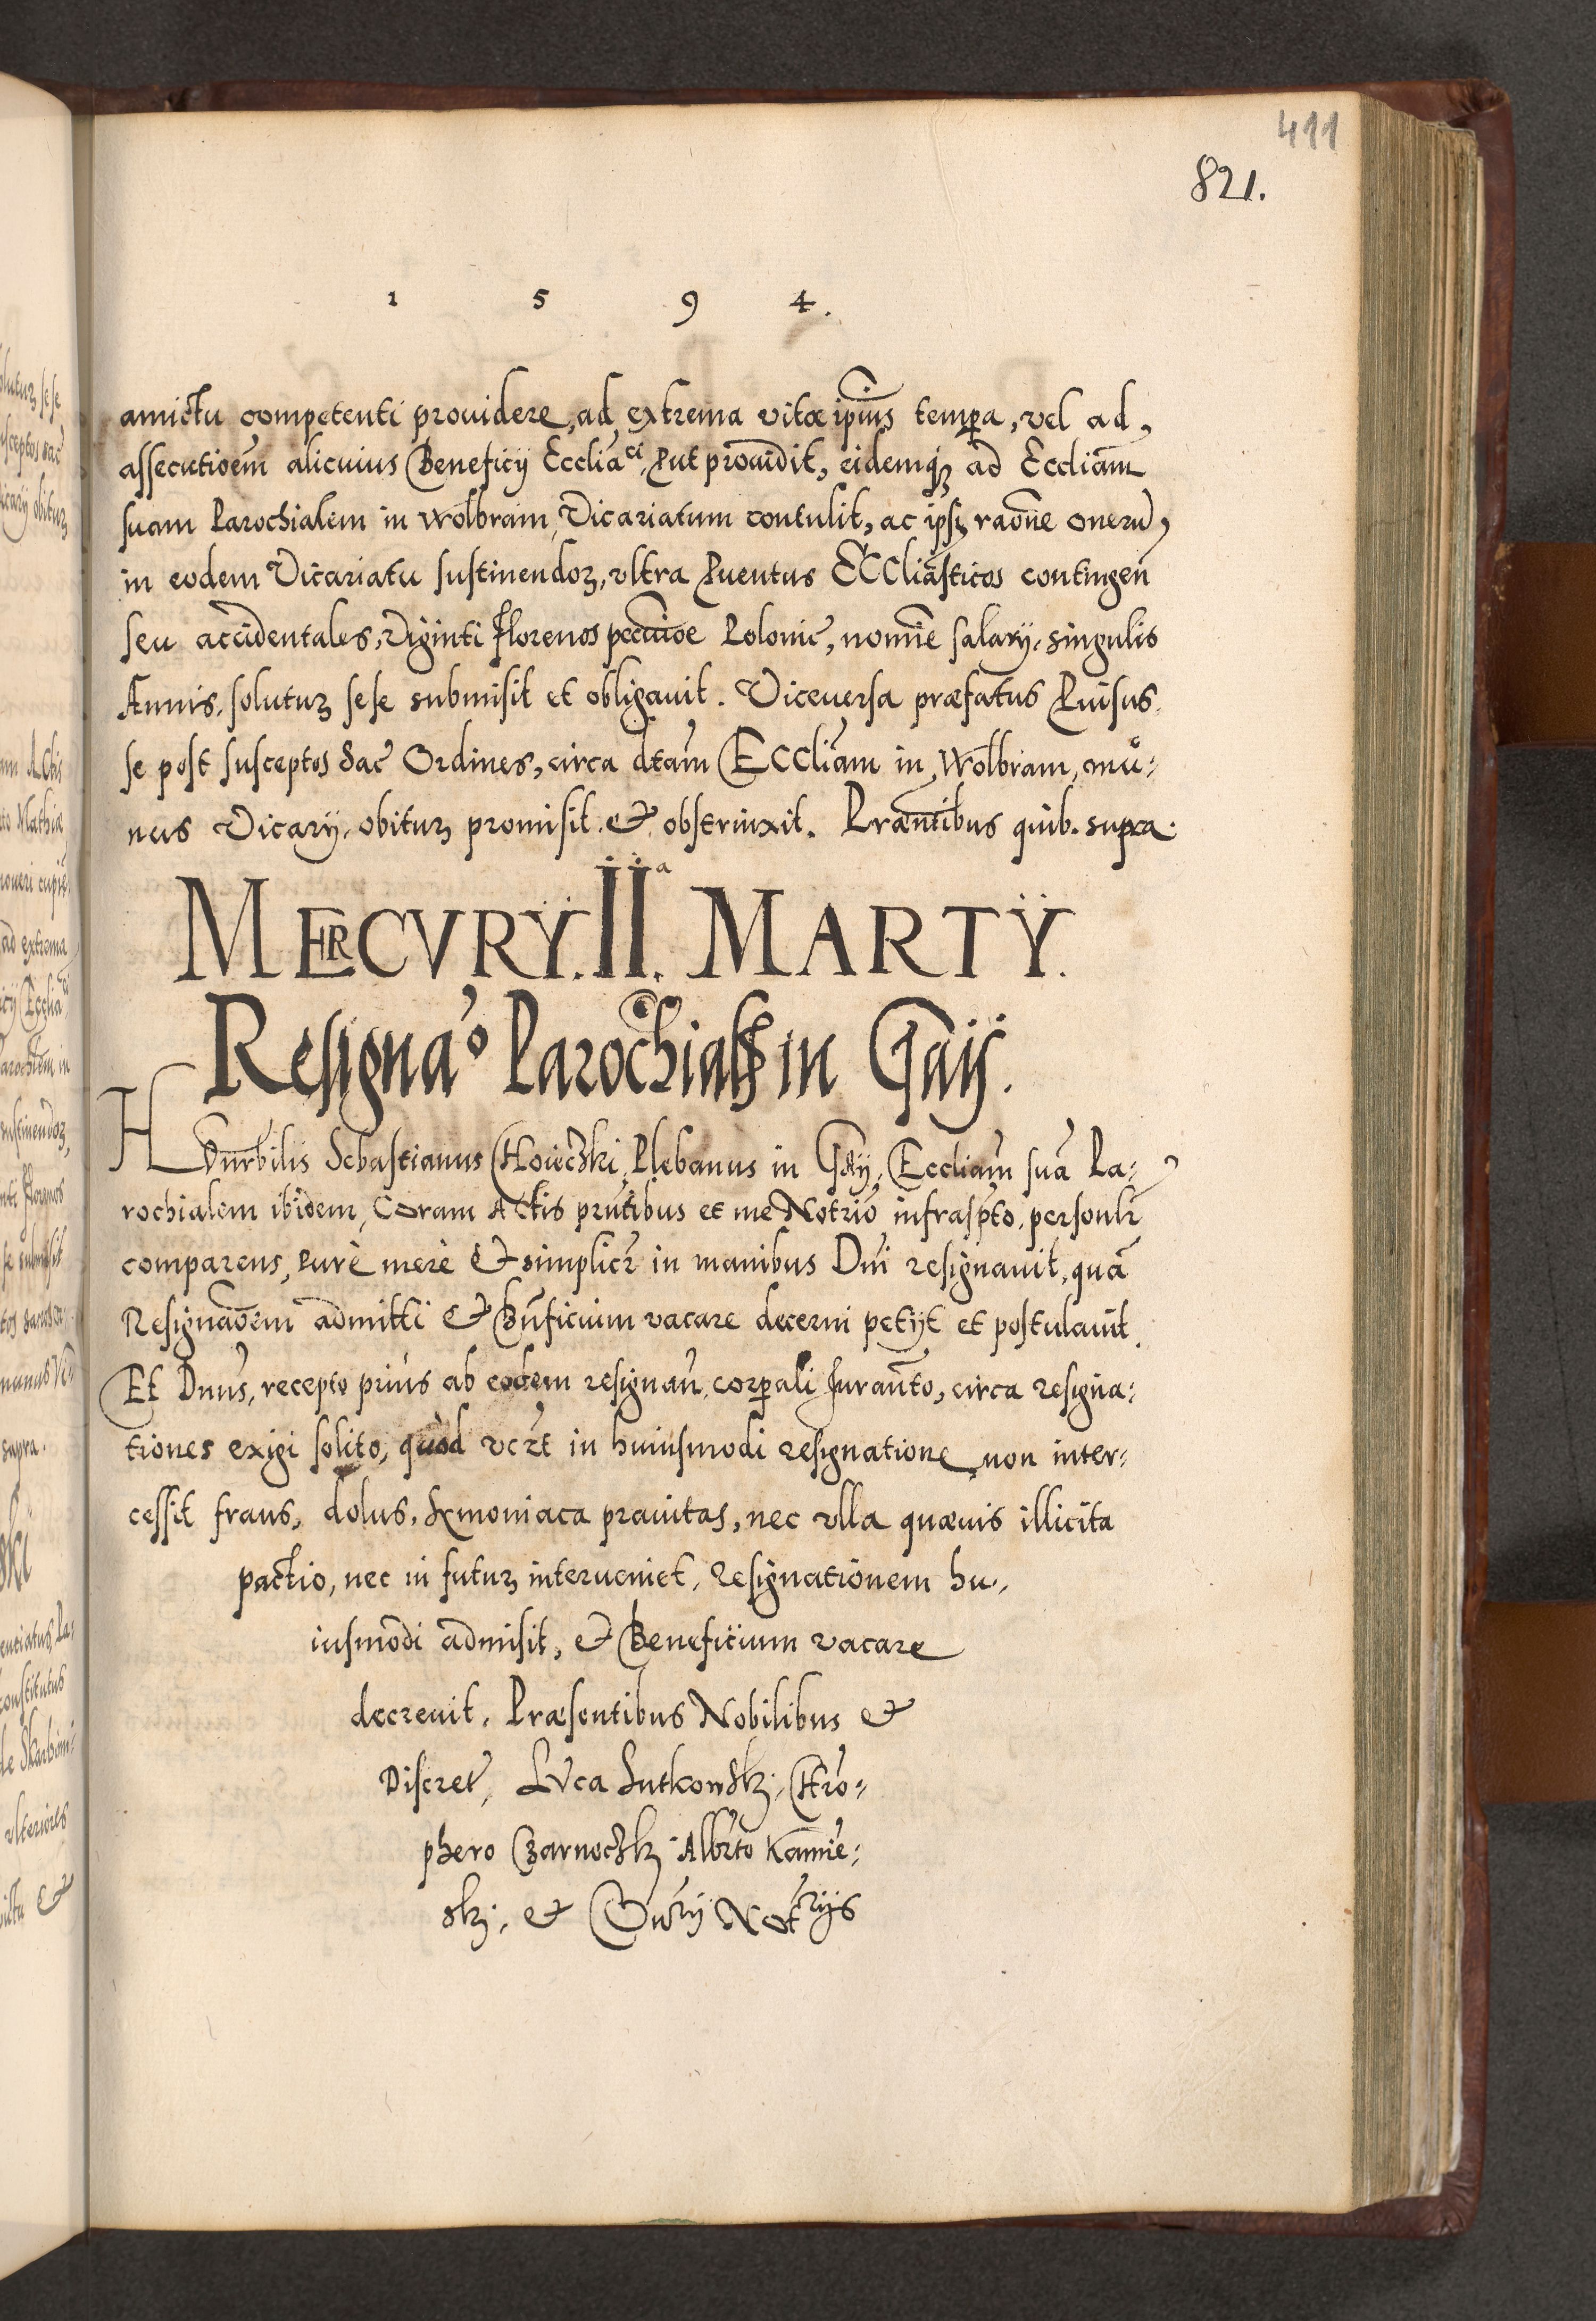 411
821.
1 5 9 4.
amictu competenti prouidere, ad extrema vitæ ipiũs tempꝑa, vel ad,
assecutioẽm alicuius Beneficij Eccliãci, Put prouidit, eidemqꝫ ad Eccliãm
suam Parochialem in Wolbram, Vicariatum contulit, ac ipsꝫ raõne onerũ,
in eodem Vicariatu sustinendoꝝ, vltra Puentus ECCliãsticos contingeñ
seu accidentales, Viginti Florenos pecuniæ Polonic̃, nomiẽ salarij, singulis
Annis, solutuꝝ sese submisit et obligauit. Viceuersa præfatus Puisus
se post susceptos Sac̃ Ordines, circa dtam̃ ECCliãm in Wolbram, mu⸗
nus Vicarij, obituꝝ promisit & obstrinxit. Præntĩbus quib. supra.
MERCVRŸ. IIa. MARTŸ.
Resignaõ Parochialis in Gaij.
Hõnrbilis Sebastianus Plebanus in Gaÿ, Eccliãm suã Pa⸗
rochialem ibidem, Coram Actis prñtibus et me Notriõ infrasp̃to, personlr̃
comparens, pure mere & simplicr̃ in manibus Dñi resignauit, quã
Resignaõem admitti & Bñficium vacare decerni petijt et postulauit.
Et Dnus̃, recepto prius ab eodem resignañ, corꝑali Iuramto, circa resigna⸗
tiones exigi solito, quòd vcr̃t in huiusmodi resignatione non inter⸗
cessit fraus, dolus, Symoniaca prauitas, nec vlla quæuis illicita
pactio, nec in futuꝝ interueniet, resignationem hu⸗
iusmodi admisit, & Beneficium vacare
decreuit, Præsentibus Nobilibus &
Discret̃, Luca Sutkowskj, Xro⸗
phero Czarnockj Albr̃to Kamie⸗
skj, & Notr̃ijs